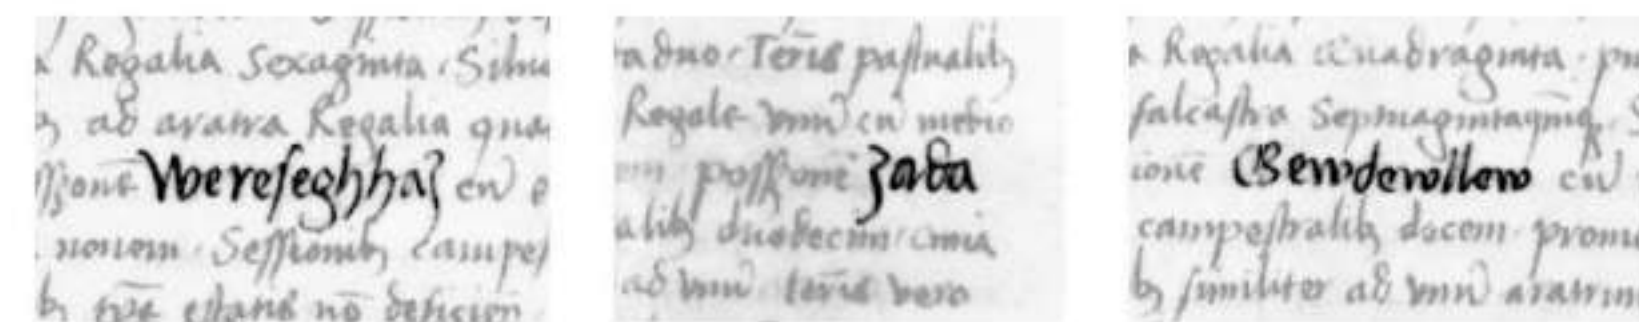 Regalia Sexaginta Silu
ad aratra Regalia qua
Wereseghhaz cu e
nonem Sessionib campes
duo Terris pascualib
Regale vnu cu medio
possessione Zada
alib duodecim
ad vnu terris vero
a Regalia Quadraginta pr
falcastra Septuagintaquinq S
ione Bewdewllew cu
campestralib decem promo
b similiter ad vnu aratrum